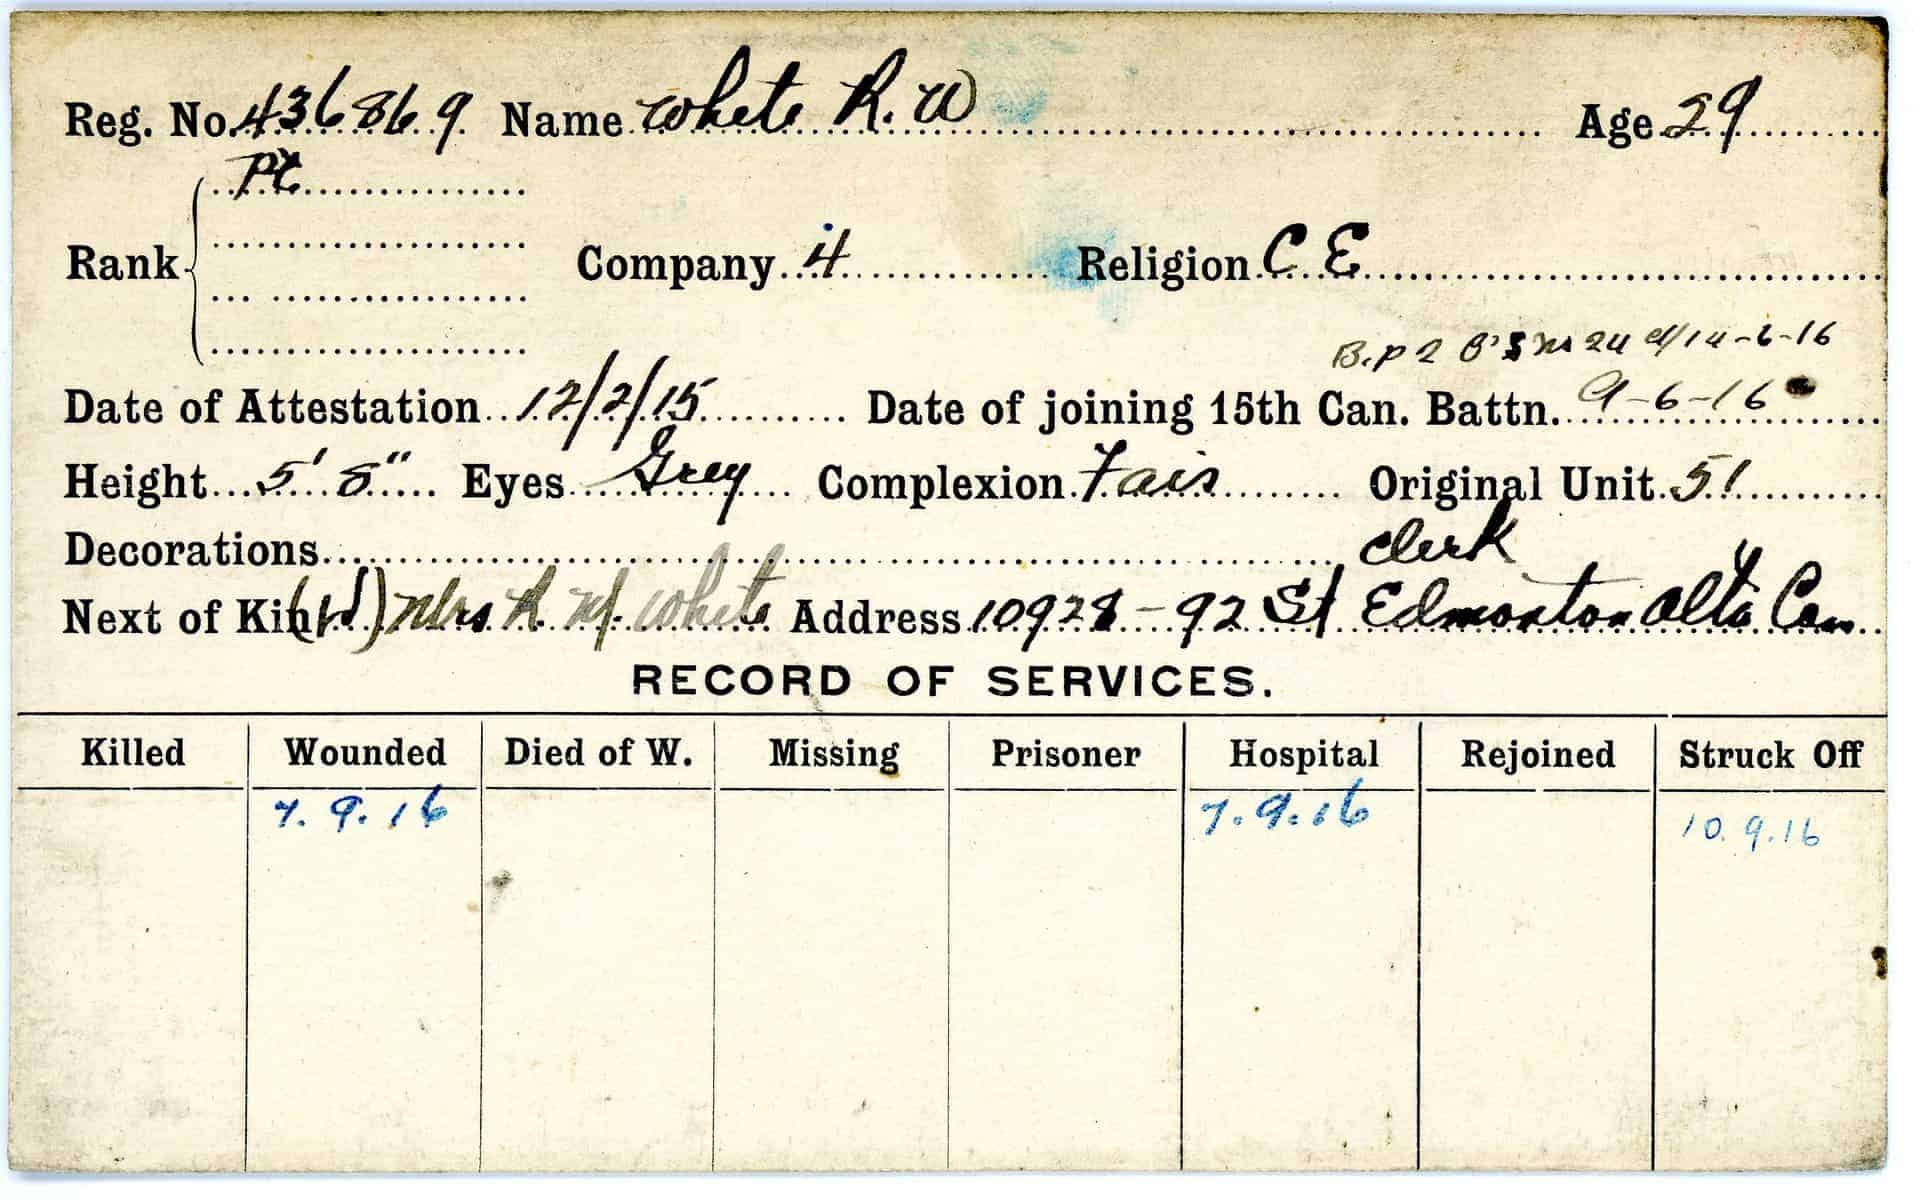 Reg. No. 436869 Name White R. W Age 29
Pte
Rank Company 4 Religion C. E
B.P 2 O's 24 d/14-6-16
Date of Attestation 12/2/15 Date of joining 15th Can. Battn. 9-6-16
Height 5' 8" Eyes Grey Complexion Fair Original Unit 51
Decorations Clerk
Next of Kin (W) Mrs R. M. White Address 10928-92 St Edmonton Alta Can
RECORD OF SERVICES.
Killed Wounded Died of W. Missing Prisoner Hospital Rejoined Struck Off
7.9.16 7.9.16 10.9.16